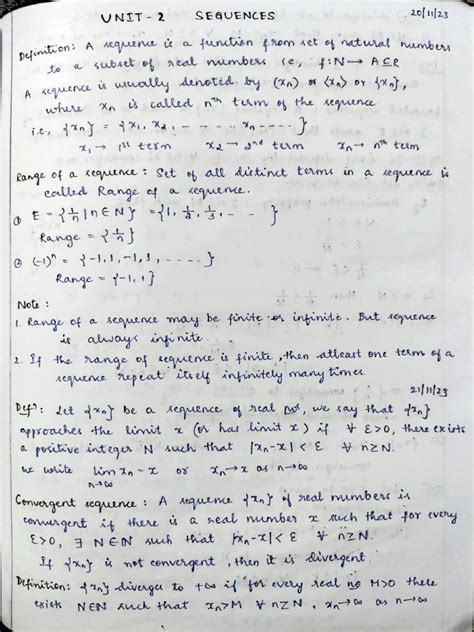 UNIT-2 SEQUENCES 20/11/23
Definition: A sequence is a function from set of natural numbers
to a subset of real numbers i.e, f:N→A⊆R
A sequence is usually denoted by (xn) or <xn> or {xn},
where xn is called nth term of the sequence
i.e, {xn} = {x1, x2, - - - - - xn - - - - }
x1 → 1st term x2 → 2nd term xn → nth term
Range of a sequence: Set of all distinct terms in a sequence is
called Range of a sequence.
① E = {1/n | n∈N} = {1, 1/2, 1/3, - - - }
Range = {1/n}
② (-1)^n = {-1, 1, -1, 1, - - - - }
Range = {-1, 1}
Note:
1. Range of a sequence may be finite or infinite. But sequence
is always infinite.
2. If the range of sequence is finite, then atleast one term of a
sequence repeat itself infinitely many times.
21/11/23
Defn: Let {xn} be a sequence of real no's, we say that {xn}
approaches the limit x (or has limit x) if ∀ ε>0, there exists
a positive integer N such that |xn-x| < ε ∀ n≥N.
we write lim n→∞ xn = x or xn→x as n→∞
Convergent sequence: A sequence {xn} of real numbers is
convergent if there is a real number x such that for every
ε>0, ∃ N∈N such that |xn-x| < ε ∀ n≥N.
If {xn} is not convergent, then it is divergent.
Definition: {xn} diverges to +∞ if for every real no M>0 there
exists N∈N such that xn>M ∀ n≥N. xn→∞ as n→∞